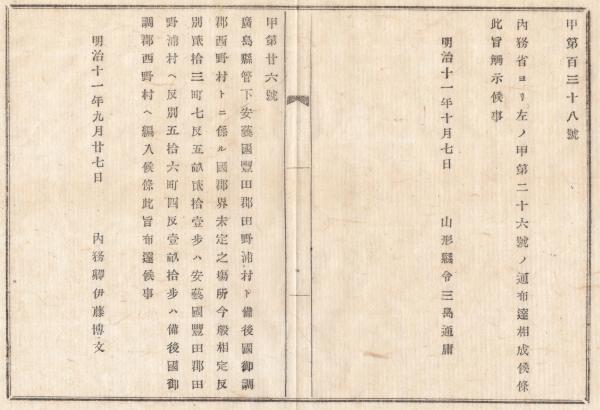 甲第百三十八號
內務省ヨリ左ノ甲第二十六號ノ通布達相成候條
此旨觸示候事
明治十一年十月七日　山形縣令三島通庸
甲第廿六號
廣島縣管下安藝國豐田郡田野浦村ト備後國御調
郡西野村トニ係ル國郡界未定之塲所今般相定反
別貳拾三町七反五畝貳拾壹步ハ安藝國豐田郡田
野浦村ヘ反別五拾六町四反壹畝拾步ハ備後國御
調郡西野村ヘ編入候條此旨布達候事
明治十一年九月廿七日　內務卿伊藤博文